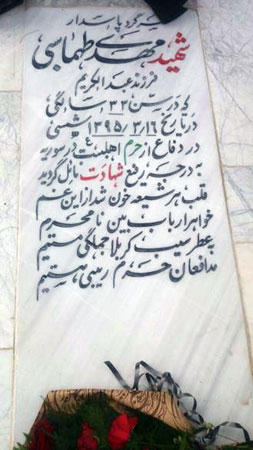 که گرد پاسدار
شهید مهدی طهماسبی
فرزند عبدالکریم
که در سن ۳۳ سالگی
در تاریخ ۱۳۹۵/۳/۱۶ شمسی
در دفاع از حرم اهلبیت ع در سوریه
به درجه رفیع شهادت نائل گردید
قلب هر شیعه خون شد از این غم
خواهر ارباب بین نامحرم
به عطر سیب کربلا جملگی مستیم
مدافعان حرم زینبی هستیم